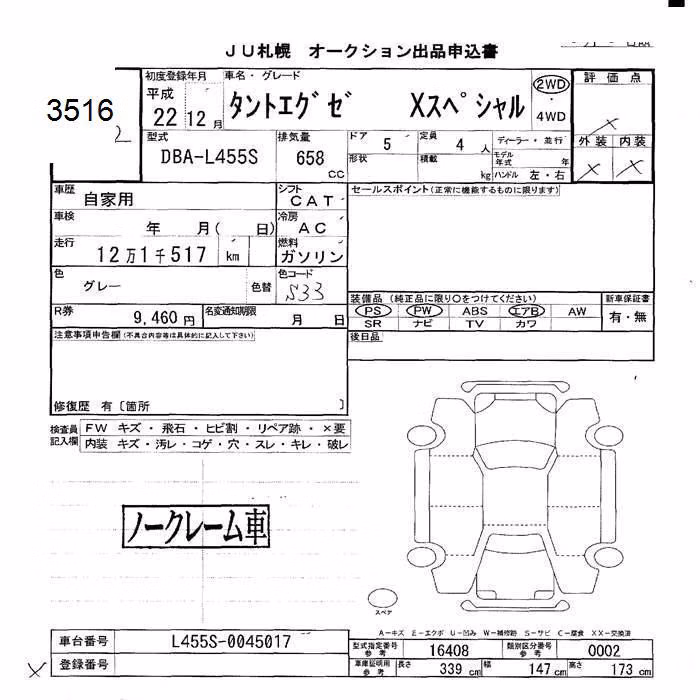 JU札幌 オークション出品申込書
3516
2
初度登録年月 車名・グレード
平成
22 12月
タントエグゼ Xスペシャル
2WD
・
4WD
評価点
×
外装 内装
× ×
型式
DBA-L455S
排気量
658 CC
ドア 5 定員 4 人
形状 積載 kg
ディーラー・並行
モデル年式 年
ハンドル 左・右
車歴 自家用
シフト CAT
セールスポイント(正常に機能するものに限ります)
車検 年 月( 日)
冷房 AC
走行 12万1千517 km
燃料 ガソリン
色 グレー 色替
色コード S33
R券 9,460円
名変通知期限 月 日
装備品 (純正品に限り○をつけてください)
PS PW ABS エアB AW
SR ナビ TV カワ
新車保証書
有・無
注意事項申告欄(不具合内容等は具体的に記入して下さい)
後日品
修復歴 有〔箇所 〕
検査員記入欄
FW キズ・飛石・ヒビ割・リペア跡・×要
内装 キズ・汚レ・コゲ・穴・スレ・キレ・破レ
ノークレーム車
スペア
A-キズ E-エクボ U-凹み W-補修跡 S-サビ C-腐食 XX-交換済
車台番号 L455S-0045017
型式指定番号参考 16408 類別区分番号参考 0002
× 登録番号
車庫証明用参考 長さ 339 cm 幅 147 cm 高さ 173 cm